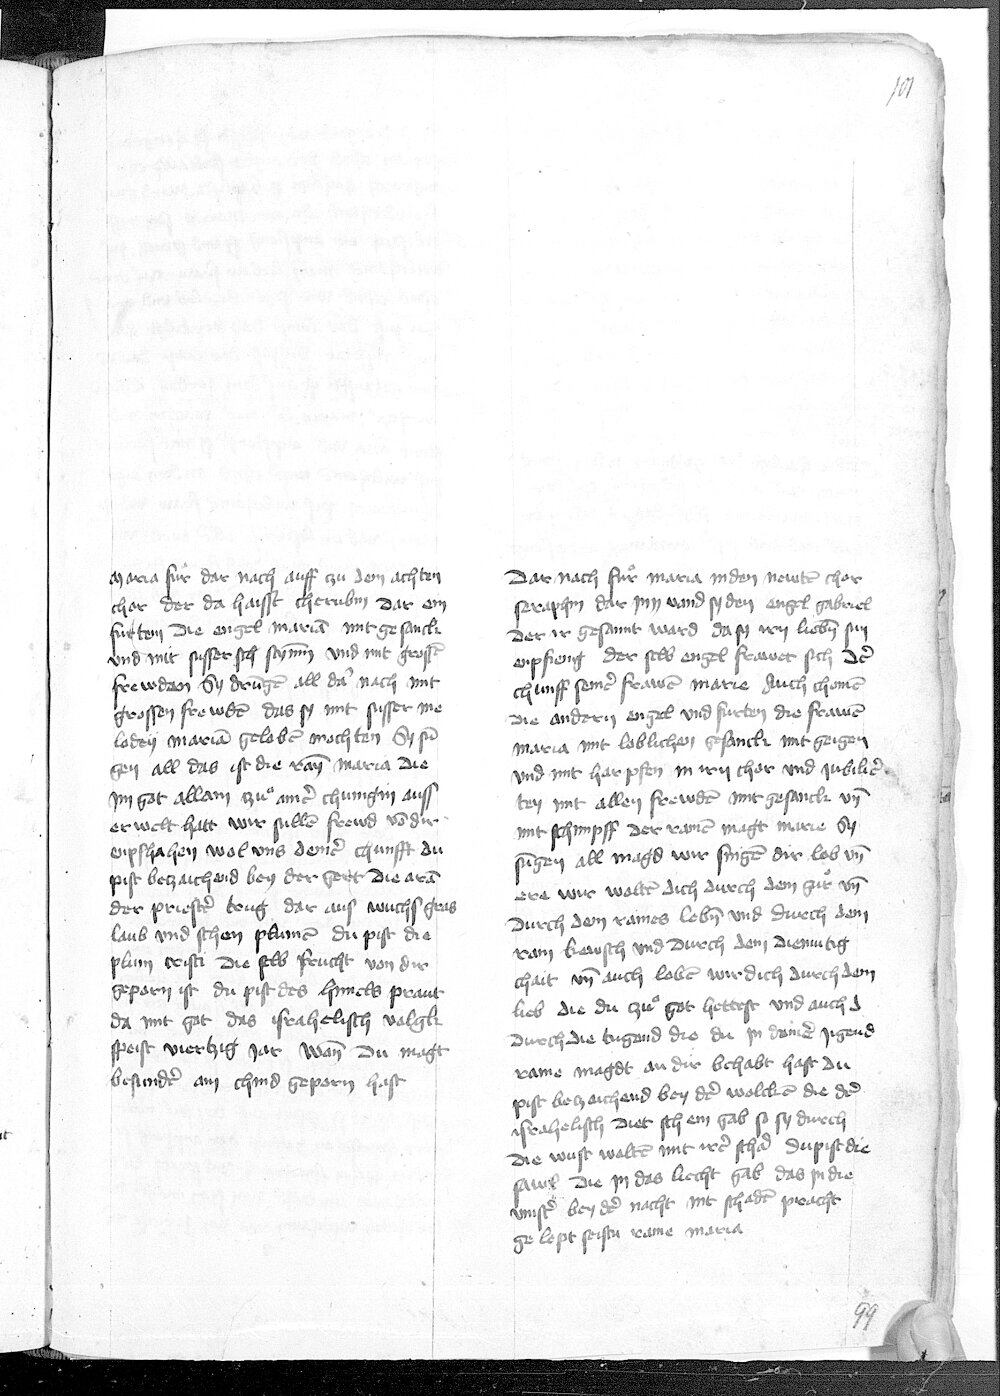 101
Maria fuͦr dar nach auff czu dem achten
chor der da haisst cherubin Dar ein
furten Die engel mariā mit gesanck
vnd mit susser sch stȳm vnd mit grossē
frewden Sy drungē all da͛ nach mit
grossen frewdē das sy mit susser me
lodey mariā gelobē mochten Sy sū
gen all das ist die rain̄ maria Die
im got allain czuͦ aine͛ chunigin auss
erwelt hatt wir sullē frewd vō dir
enpfhahen wol vns deine͛ chunfft du
pist beczaichend bey der gert Die arā
der prieste͛ trug dar aus wuchs gras
laub vnd schon plumē du pist die
plum cristi Die selb frucht von dir
geporn ist du pist des himels praut
da mit got das israhelisch volgk
speist viertzig jar wan̄ Du magt
besunde͛ ain chind geporn hast
Dar nach fuͦr maria in den newtē chor
seraphin dar jnn vand sy den engel gabriel
Der ir gesannt ward da sy irn liebn̄ sun
enpfieng Der selb engel frawet sich de͛
chunff seine͛ frawē marie Auch chomē
die andern engel vnd furten die frawē
maria mit loblichen gesanck mit geigen
vnd mit harpfen in irn chor vnd jubilie͛
ten mit allen frewdē mit gesanck vn̄
mit schimpff Der rainē magt marie Sy
sūgen all magd wir singē dir lob vn̄
ere wir woltē dich durch dein guͦr vn̄
Durch dein raines lebn̄ vnd durch dein
rain kewsch vnd Durch dein diemutig
chait vn̄ auch lobē wir dich durch dein
lieb die du czuͦ got hettest vnd auch d
Durch die tugend die du in deine͛ jugend
raine magdt an dir behabt hast du
pist beczaichend bey de͛ wolckē die de͛
israhelisch diet sch ein gab so sy durch
Die wust woltē mit ire͛ scha͛ Du pist die
sawl Die in das liecht gab das in die
vinste͛ bey de͛ nacht mit schadē pracht
gelopt seistu raine maria
99